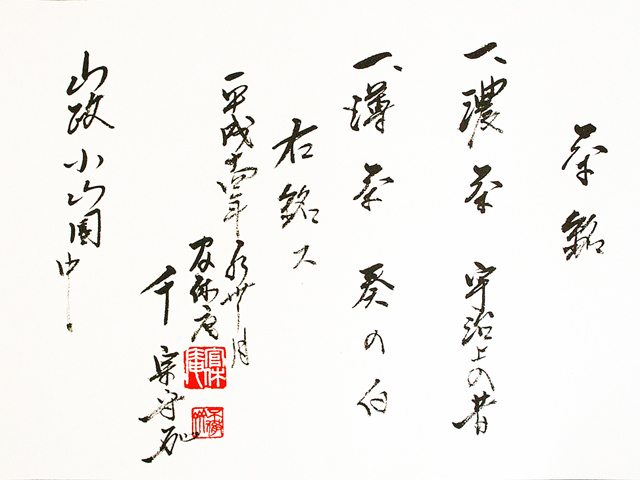 茶銘
一、濃茶 宇治上の昔
一、薄茶 葵の伯
右銘ス
平成十四年 月
官休庵
千 宗守
山政小山園